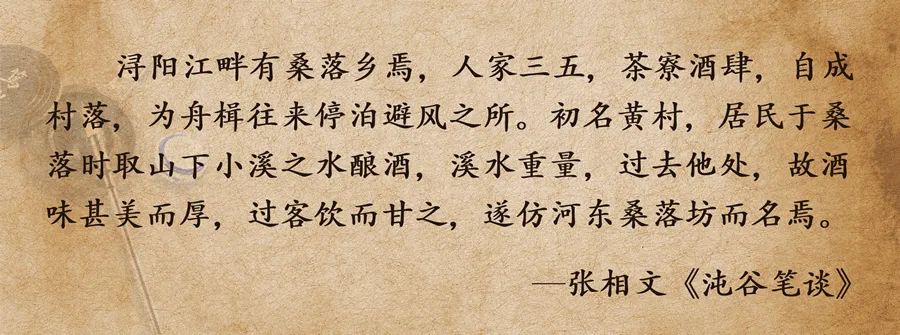 浔阳江畔有桑落乡焉，人家三五，茶寮酒肆，自成
村落，为舟楫往来停泊避风之所。初名黄村，居民于桑
落时取山下小溪之水酿酒，溪水重量，过去他处，故酒
味甚美而厚，过客饮而甘之，遂仿河东桑落坊而名焉。
—张相文《沌谷笔谈》